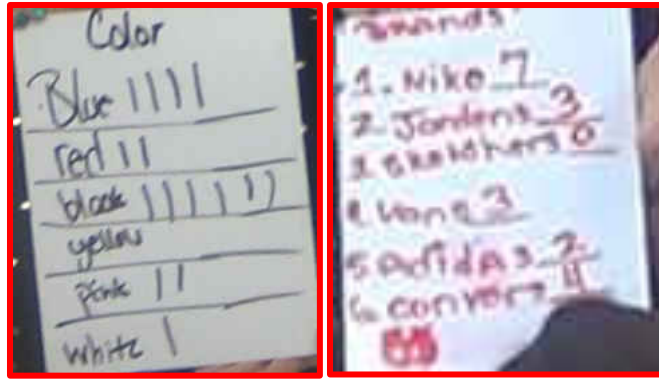 Color
Blue ||||
red ||
black ||||||
yellow
pink ||
white |
Brands
1. Nike 7
2. Jordens 3
3. Sketchers 0
4. Vans 3
5. Adidas 2
6. convers 4